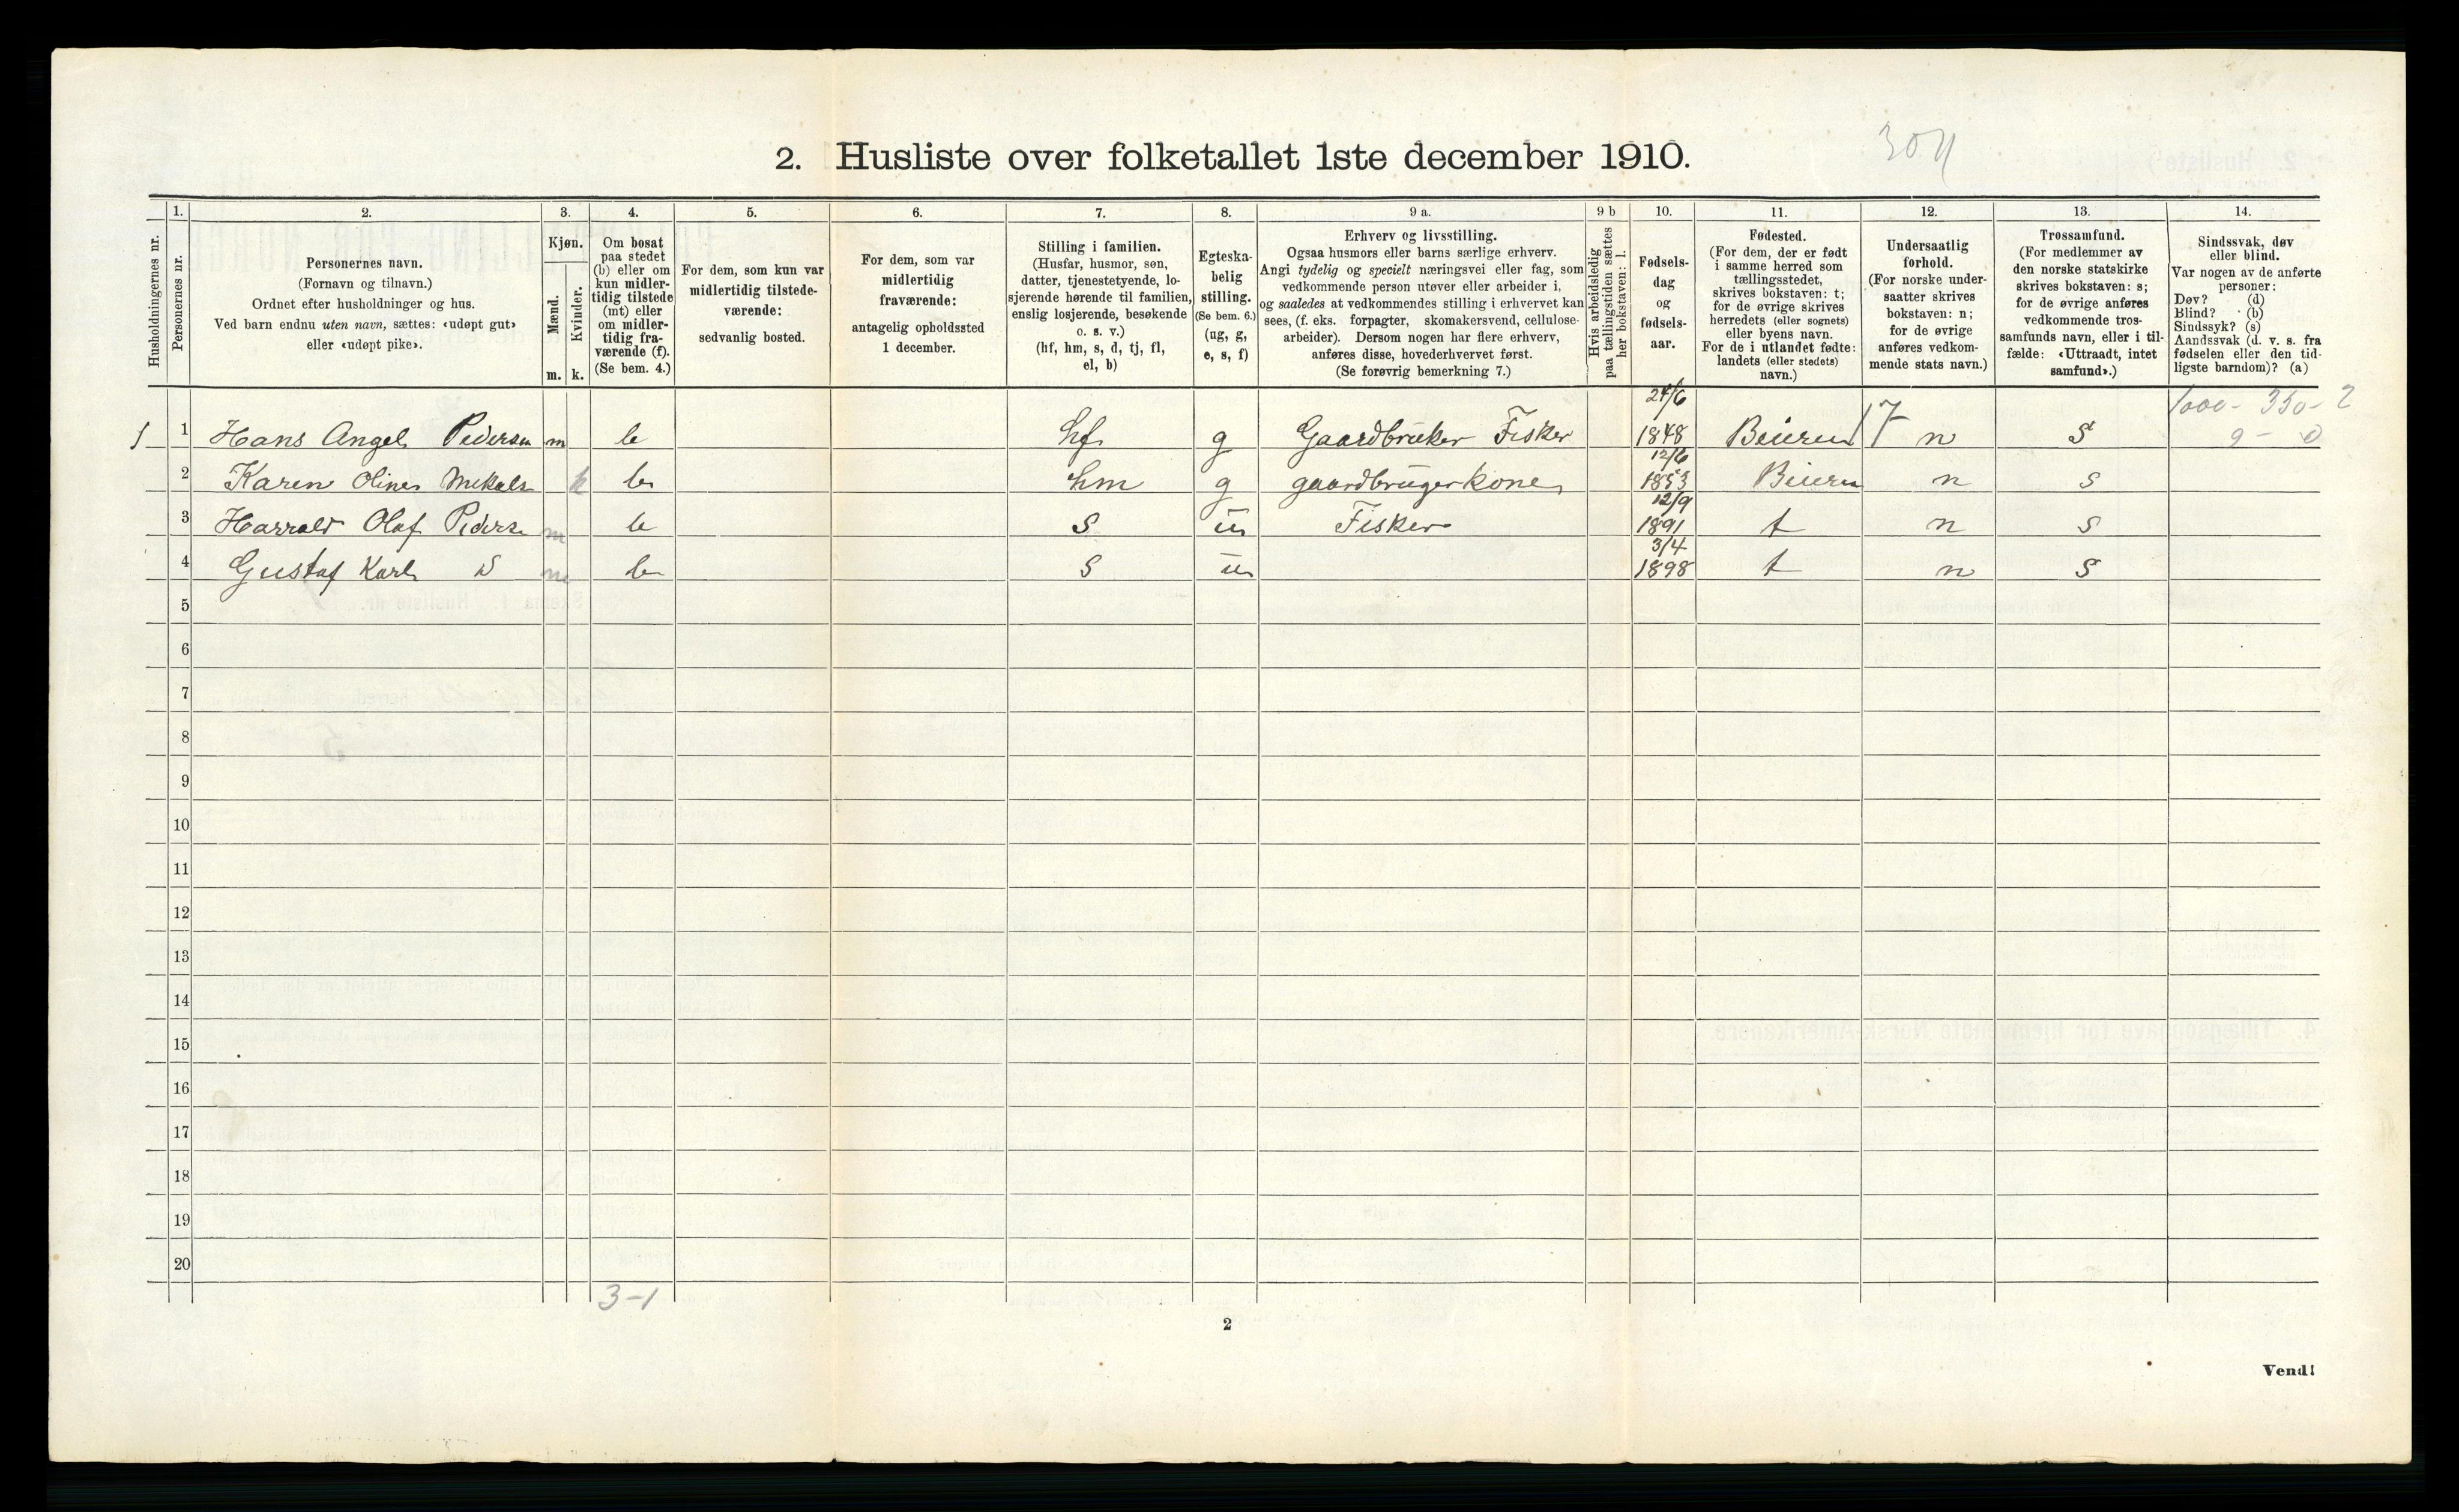 2. Husliste over folketallet 1ste december 1910.
Husholdningernes nr.
1.
Personernes nr.
2.
Personernes navn.
(Fornavn og tilnavn.)
Ordnet efter husholdninger og hus.
Ved barn endnu uten navn, sættes: «udøpt gut»
eller «udøpt pike».
3.
Kjøn.
Mænd.
Kvinder.
m. k.
4.
Om bosat
paa stedet
(b) eller om
kun midler-
tidig tilstede
(mt) eller
om midler-
tidig fra-
værende (f).
(Se bem. 4.)
5.
For dem, som kun var
midlertidig tilstede-
værende:
sedvanlig bosted.
6.
For dem, som var
midlertidig
fraværende:
antagelig opholdssted
1 december.
7.
Stilling i familien.
(Husfar, husmor, søn,
datter, tjenestetyende, lo-
sjerende hørende til familien,
enslig losjerende, besøkende
o. s. v.)
(hf, hm, s, d, tj, fl,
el, b)
8.
Egteska-
belig
stilling.
(Se bem. 6.)
(ug, g,
e, s, f)
9 a.
Erhverv og livsstilling.
Ogsaa husmors eller barns særlige erhverv.
Angi tydelig og specielt næringsvei eller fag, som
vedkommende person utøver eller arbeider i,
og saaledes at vedkommendes stilling i erhvervet kan
sees, (f. eks. forpagter, skomakersvend, cellulose-
arbeider). Dersom nogen har flere erhverv,
anføres disse, hovederhvervet først.
(Se forøvrig bemerkning 7.)
9 b
Hvis arbeidsledig
paa tællingstiden sættes
her bokstaven: l.
10.
Fødsels-
dag
og
fødsels-
aar.
11.
Fødested.
(For dem, der er født
i samme herred som
tællingsstedet,
skrives bokstaven: t;
for de øvrige skrives
herredets (eller sognets)
eller byens navn.
For de i utlandet fødte:
landets (eller stedets)
navn.)
12.
Undersaatlig
forhold.
(For norske under-
saatter skrives
bokstaven: n;
for de øvrige
anføres vedkom-
mende stats navn.)
13.
Trossamfund.
(For medlemmer av
den norske statskirke
skrives bokstaven: s;
for de øvrige anføres
vedkommende tros-
samfunds navn, eller i til-
fælde: «Uttraadt, intet
samfund».)
14.
Sindssvak, døv
eller blind.
Var nogen av de anførte
personer:
Døv? (d)
Blind? (b)
Sindssyk? (s)
Aandssvak (d. v. s. fra
fødselen eller den tid-
ligste barndom)? (a)
1000 - 350 - 2
9 - 0
1 1 Hans Angel Pedersen m b hf g Gaardbruker Fisker 24/6 1848 Beieren 17 n S
2 Karen Oline Mikals k b hm g gaardbrugerkone 12/6 1853 Beieren n s
3 Harrald Olaf Peders m b S u Fisker 12/9 1891 t n s
4 Gustaf Karl S m b S u 3/4 1898 t n S
5
6
7
8
9
10
11
12
13
14
15
16
17
18
19
20
3-1
2
Vend!